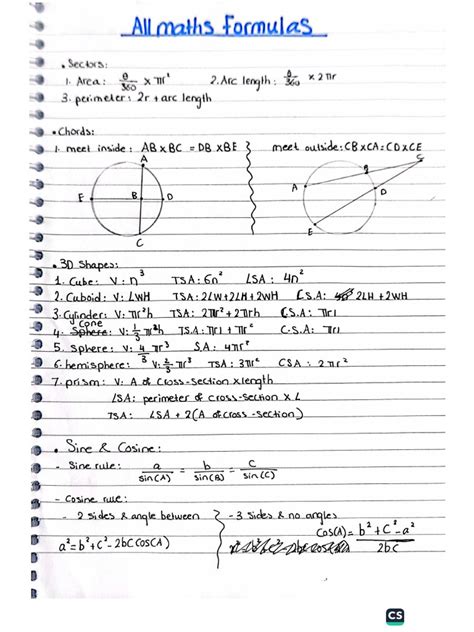 All maths Formulas
• Sectors:
1. Area: θ/360 × πr² 2. Arc length: θ/360 × 2πr
3. perimeter: 2r + arc length
• Chords:
1. meet inside: AB × BC = DB × BE meet outside: CB×CA = CD×CE
A
C
B
A
E B D
D
E
C
• 3D Shapes:
1. Cube: V: n³ TSA: 6n² LSA: 4n²
2. Cuboid: V: LWH TSA: 2LW+2LH+2WH C.S.A: 2LH+2WH
3. Cylinder: V: πr²h TSA: 2πr²+2πrh C.S.A:
4. Cone V: 1/3 πr²h TS.A: πrl + πr² C.S.A: πrl
5. Sphere: V: 4/3 πr³ S.A: 4πr²
6. hemisphere: V: 2/3 πr³ TSA: 3πr² CSA: 2πr²
7. prism: V: A of Cross-section × length
LSA: perimeter of cross-section × L
TSA: LSA + 2(A of cross-section)
• Sine & Cosine:
- Sine rule: a/sin(A) = b/sin(B) = c/sin(C)
- Cosine rule:
- 2 sides & angle between - 3 Sides & no angles
a² = b² + c² - 2bc cos(A) cos(A) = b² + c² - a² / 2bc
CS